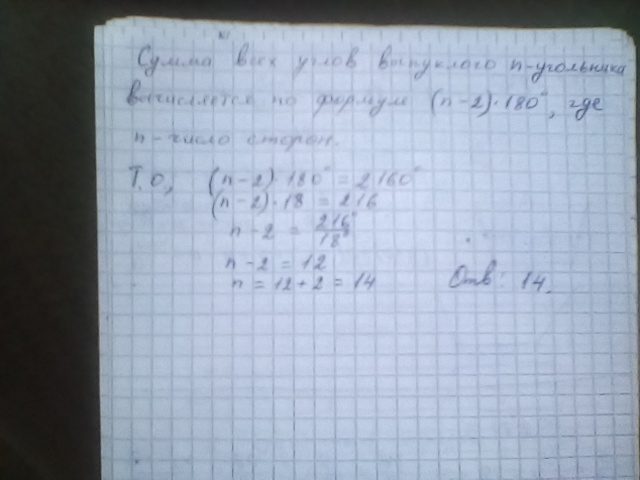 Сумма всех углов выпуклого n-угольника
вычисляется по формуле (n-2)·180°, где
n - число сторон.
Т.О, (n-2)·180° = 2160°
(n-2)·18 = 216
n-2 = 216°/18°
n-2 = 12
n = 12+2 = 14 Отв: 14.